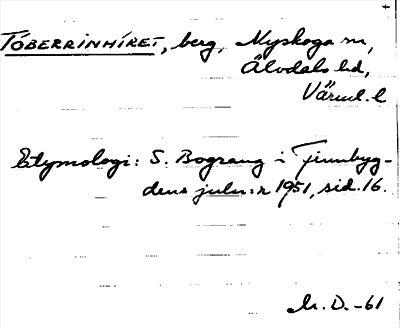 TÓBERRINHÍRET, berg, Nyskoga sn,
Älvdals hd,
Värml. l
Etymologi: S. Bograng i Finnbyg-
dens julnr 1951, sid. 16.
M. D. -61